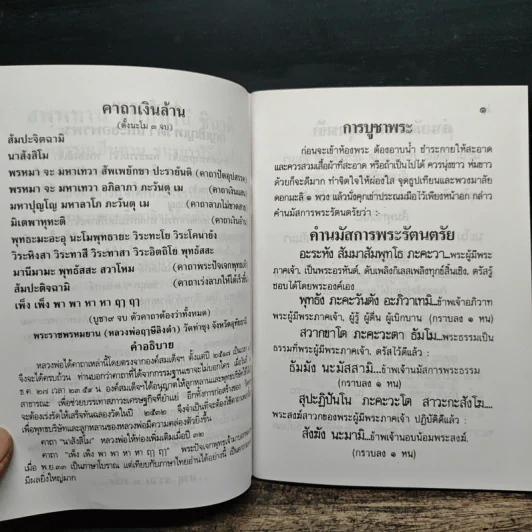 คาถาเงินล้าน
(ตั้งนะโม ๓ จบ)
สัมปะจิตฉามิ
นาสังสิโม
พรหมา จะ มหาเทวา สัพเพยักขา ปะรายันติ (คาถาปัดอุปสรรค)
พรหมา จะ มหาเทวา อภิลาภา ภะวันตุ เม (คาถาเงินแสน)
มหาปุญโญ มหาลาโภ ภะวันตุ เม (คาถาลาภไม่ขาดสาย)
มิเตพาหุหะติ (คาถาเงินล้าน)
พุทธะมะอะอุ นะโมพุทธายะ วิระทะโย วิระโคนายัง
วิระหิงสา วิระทาสี วิระทาสา วิระอิตถิโย พุทธัสสะ
มานีมามะ พุทธัสสะ สวาโหม (คาถาพระปัจเจกพุทธเจ้า)
สัมปะติจฉามิ (คาถาเร่งลาภให้ได้เร็วขึ้น)
เพ็ง เพ็ง พา พา หา หา ฤๅ ฤๅ
(บูชา๙ จบ ตัวคาถาต้องว่าทั้งหมด)
พระราชพรหมยาน (หลวงพ่อฤๅษีลิงดำ) วัดท่าซุง จังหวัดอุทัยธานี
คำอธิบาย
หลวงพ่อได้คาถาเหล่านี้โดยตรงจากองค์สมเด็จฯ ตั้งแต่ปี
จึงได้ครบถ้วน ท่านบอกว่าคาถาที่ได้จากกรรมฐานเขาจะไม่บอกใคร
องค์สมเด็จฯได้อนุญาตให้ลูกหลานและพุทธ
สาธารณะ เพื่อช่วยบรรเทาสภาวะเศรษฐกิจที่ย่ำแย่ อีกทั้งการก่อสร้าง
จะต้องเร่งรัดให้เสร็จทันฉลองวัดในปี ๒๕๓๒
เพื่อพุทธบริษัทและลูกหลานของหลวงพ่อมีความคล่องตัวยิ่งขึ้น
คาถา "นาสังสิโม" หลวงพ่อให้ท่องเพิ่มเติมเมื่อปี ๓๒
คาถา "เพ็ง เพ็ง พา พา หา หา ฤๅ ฤๅ" พระปัจเจกพุทธเจ้า
เมื่อ พ.ย.๓๓ เป็นภาษาโบราณ แต่เทียบกับภาษาไทยอ่านได้อย่างนี้
มีผลยิ่งใหญ่มาก
๑
การบูชาพระ
ก่อนจะเข้าห้องพระ ต้องอาบน้ำ ชำระกายให้สะอาด
และควรสวมเสื้อผ้าที่สะอาด หรือถ้าเป็นไปได้ ควรนุ่งขาว ห่มขาว
ด้วยก็จะดีมาก ทำจิตใจให้ผ่องใส จุดธูปเทียนและพวงมาลัย
ดอกมะลิ ๑ พวง แล้วนั่งคุกเข่าประนมมือไว้เพียงหน้าอก กล่าว
คำนมัสการพระรัตนตรัยว่า :
คำนมัสการพระรัตนตรัย
อะระหัง สัมมาสัมพุทโธ ภะคะวา..พระผู้มีพระ
ภาคเจ้า, เป็นพระอรหันต์, ดับเพลิงกิเลสเพลิงทุกข์สิ้นเชิง, ตรัสรู้
ชอบได้โดยพระองค์เอง
พุทธัง ภะคะวันตัง อะภิวาเทมิ..ข้าพเจ้าอภิวาท
พระผู้มีพระภาคเจ้า, ผู้รู้ ผู้ตื่น ผู้เบิกบาน (กราบลง ๑ หน)
สวากขาโต ภะคะวะตา ธัมโม...พระธรรมเป็น
ธรรมที่พระผู้มีพระภาคเจ้า, ตรัสไว้ดีแล้ว :
ธัมมัง นะมัสสามิ...ข้าพเจ้านมัสการพระธรรม
(กราบลง ๑ หน)
สุปะฏิปันโน ภะคะวะโต สาวะกะสังโฆ...
พระสงฆ์สาวกของพระผู้มีพระภาคเจ้า ปฏิบัติดีแล้ว :
สังฆัง นะมามิ...ข้าพเจ้านอบน้อมพระสงฆ์.
(กราบลง ๑ หน)